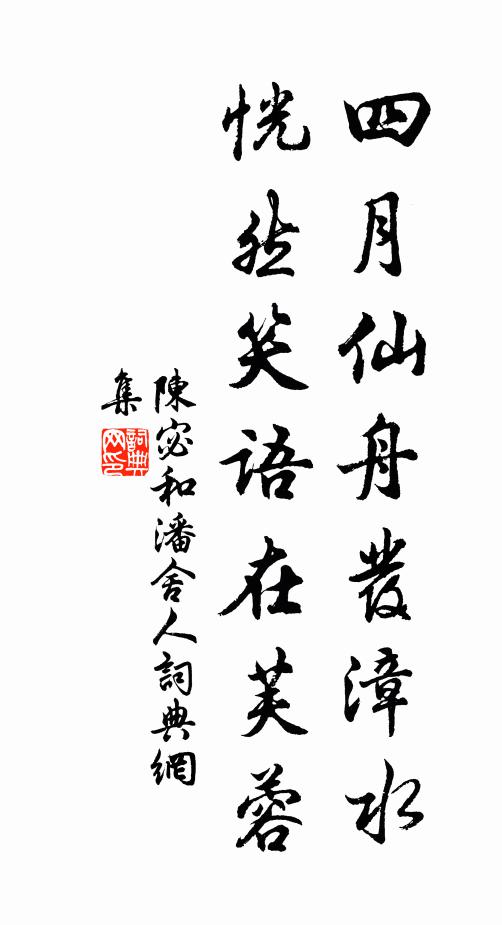 四月仙舟發漳水
恍然笑語在芙蓉
陳宓和潘舍人詞典網
集
詞典
网印